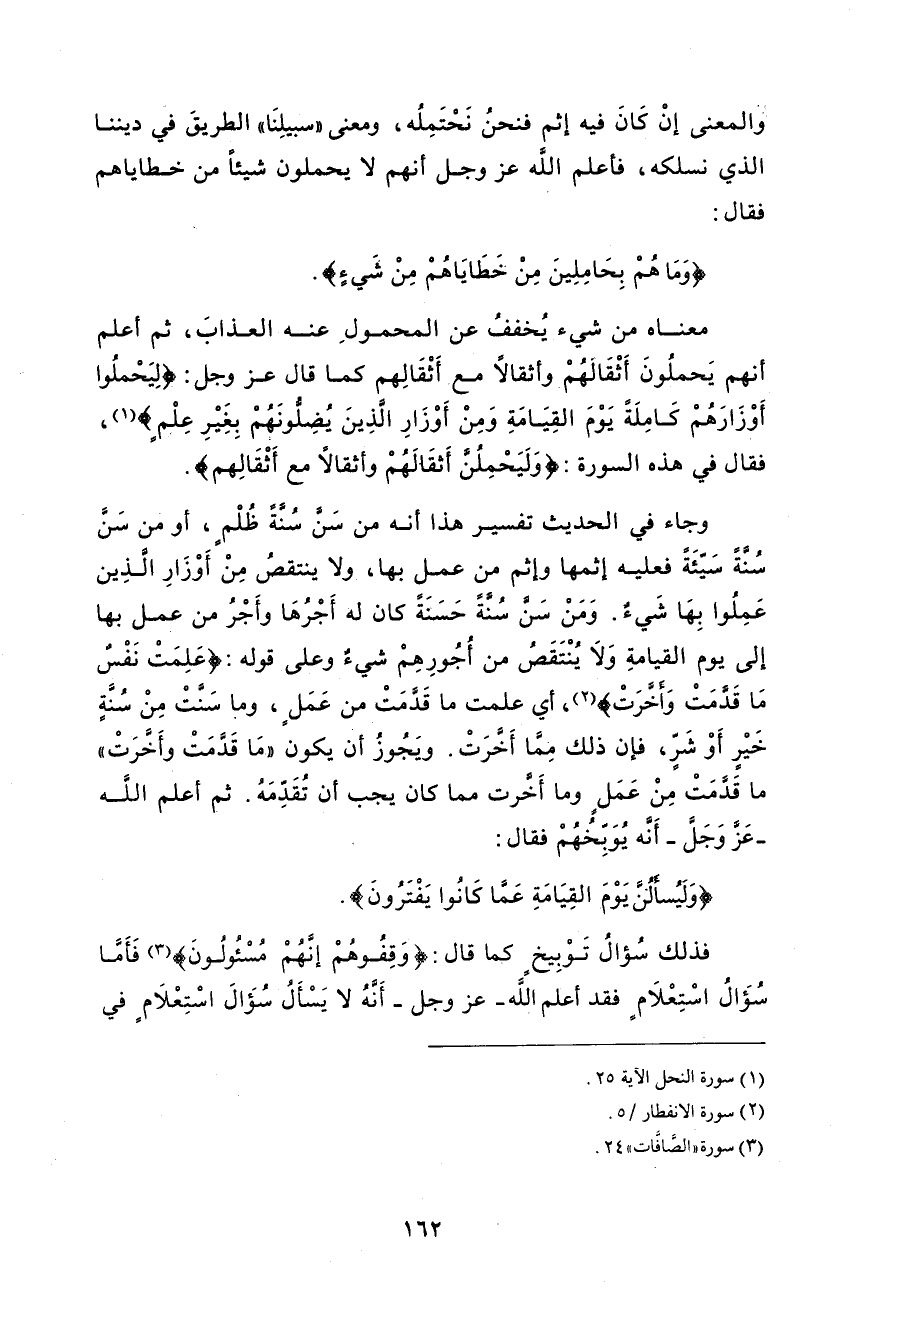 والمعنى إنْ كَانَ فيه إثم فنحنُ نَحْتَمِلُه، ومعنى «سبيلِنَا» الطريقَ في ديننا
الذي نسلكه، فأعلم اللَّه عز وجل أنهم لا يحملون شيئاً من خطاياهم
فقال:
﴿وَمَا هُمْ بِحَامِلِينَ مِنْ خَطَايَاهُمْ مِنْ شَيءٍ﴾.
معناه من شيء يُخففُ عن المحمولِ عنه العذابَ، ثم أعلم
أنهم يَحملُونَ أَثْقَالَهُمْ وأثقالاً مع أَثْقَالِهم كما قال عز وجل: ﴿لِيَحْملُوا
أَوْزَارَهُمْ كَامِلَةً يَوْمَ القِيَامَةِ وَمِنْ أَوْزَارِ الَّذِينَ يُضِلُّونَهُمْ بِغَيْرِ عِلْمٍ﴾(١)،
فقال في هذه السورة: ﴿وَلَيَحْمِلُنَّ أَثقَالَهُمْ وأثقالاً مع أَثْقَالِهم﴾.
وجاء في الحديث تفسير هذا أنه من سَنَّ سُنَّةً ظُلْمٍ، أو من سَنَّ
سُنَّةً سَيّئَةً فعليه إثمها وإثم من عمل بها، ولا ينتقصُ مِنْ أَوْزَارِ الَّذِين
عَمِلُوا بِهَا شَيءٌ. وَمَنْ سَنَّ سُنَّةً حَسَنَةً كان له أَجْرُهَا وأَجْرُ من عمل بها
إلى يوم القيامةِ وَلَا يُنْتَقَصُ من أُجُورِهِمْ شيءٌ وعلى قوله: ﴿عَلِمَتْ نَفْسٌ
مَا قَدَّمَتْ وَأَخَّرَتْ﴾(٢)، أي علمت ما قَدَّمَتْ من عَمَلٍ، وما سَنَّتْ مِنْ سُنَّةٍ
خَيْرٍ أَوْ شَرٍّ، فإن ذلك مِمَّا أَخَّرَتْ. ويَجُوزُ أن يكون «مَا قَدَّمَتْ وأَخَّرَتْ»
ما قَدَّمَتْ مِنْ عَمَلٍ وما أَخَّرت مما كان يجب أن تُقَدِّمَهُ. ثم أعلم اللَّه
ـ عَزَّ وَجَلَّ ـ أَنَّه يُوَبِّخُهُمْ فقال:
﴿وَلَيُسأَلُنَّ يَوْمَ القِيَامَةِ عَمَّا كَانُوا يَفْتَرُونَ﴾.
فذلك سُؤالُ تَوْبِيخٍ كما قال: ﴿وَقِفُوهُمْ إنَّهُمْ مُسْئُولُونَ﴾(٣) فَأَمَّا
سُؤَالُ اسْتِعْلَامٍ فقد أعلم اللَّه ـ عز وجل ـ أَنَّهُ لا يَسْأَلُ سُؤَالَ اسْتِعْلَامٍ في
(١) سورة النحل الآية ٢٥.
(٢) سورة الانفطار /٥.
(٣) سورة «الصَّافَّات» ٢٤.
١٦٢